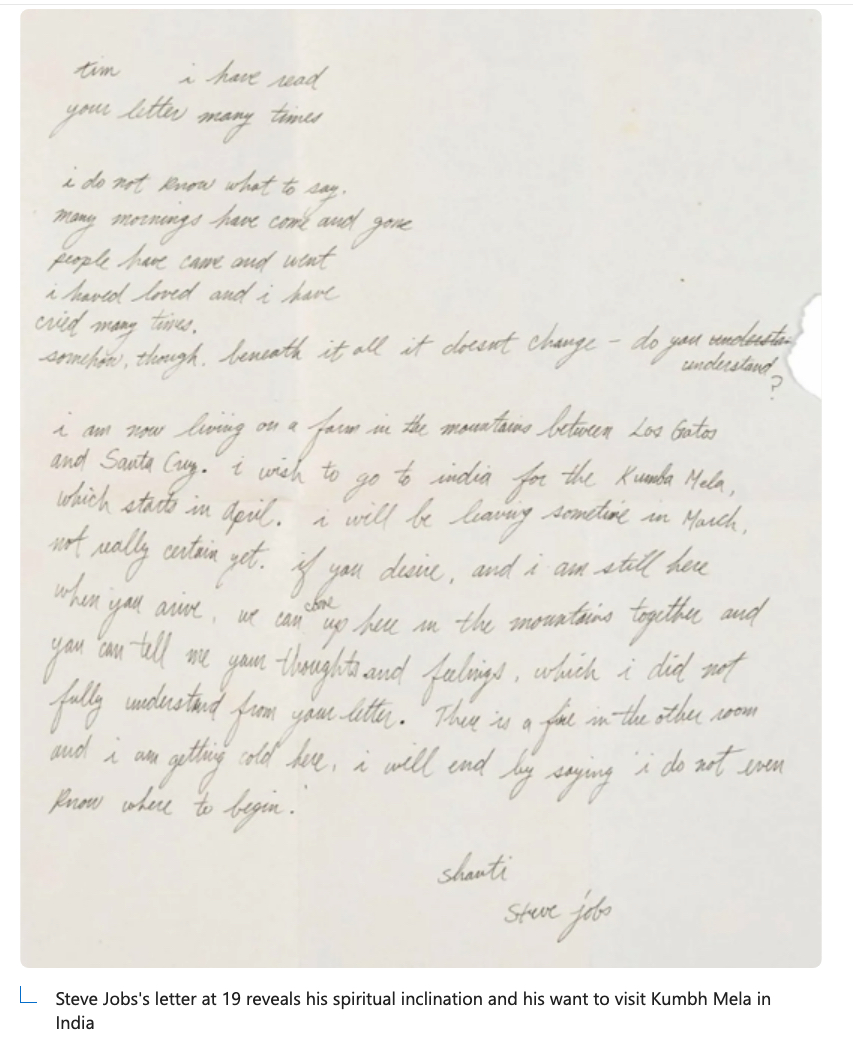 tim i have read
your letter many times
i do not know what to say.
many mornings have come and gone
people have came and went
i haved loved and i have
cried many times.
somehow, though, beneath it all it doesnt change - do you understa
understand
?
i am now living on a farm in the mountains between Los Gatos
and Santa Cruz. i wish to go to india for the Kumba Mela,
which starts in april. i will be leaving sometime in March,
not really certain yet. if you desire, and i am still here
when you arive, we can come up here in the mountains together and
you can tell me your thoughts and feelings, which i did not
fully understand from your letter. There is a fire in the other room
and i am getting cold here. i will end by saying 'i do not even
know where to begin.'
shanti
steve jobs
Steve Jobs's letter at 19 reveals his spiritual inclination and his want to visit Kumbh Mela in
India